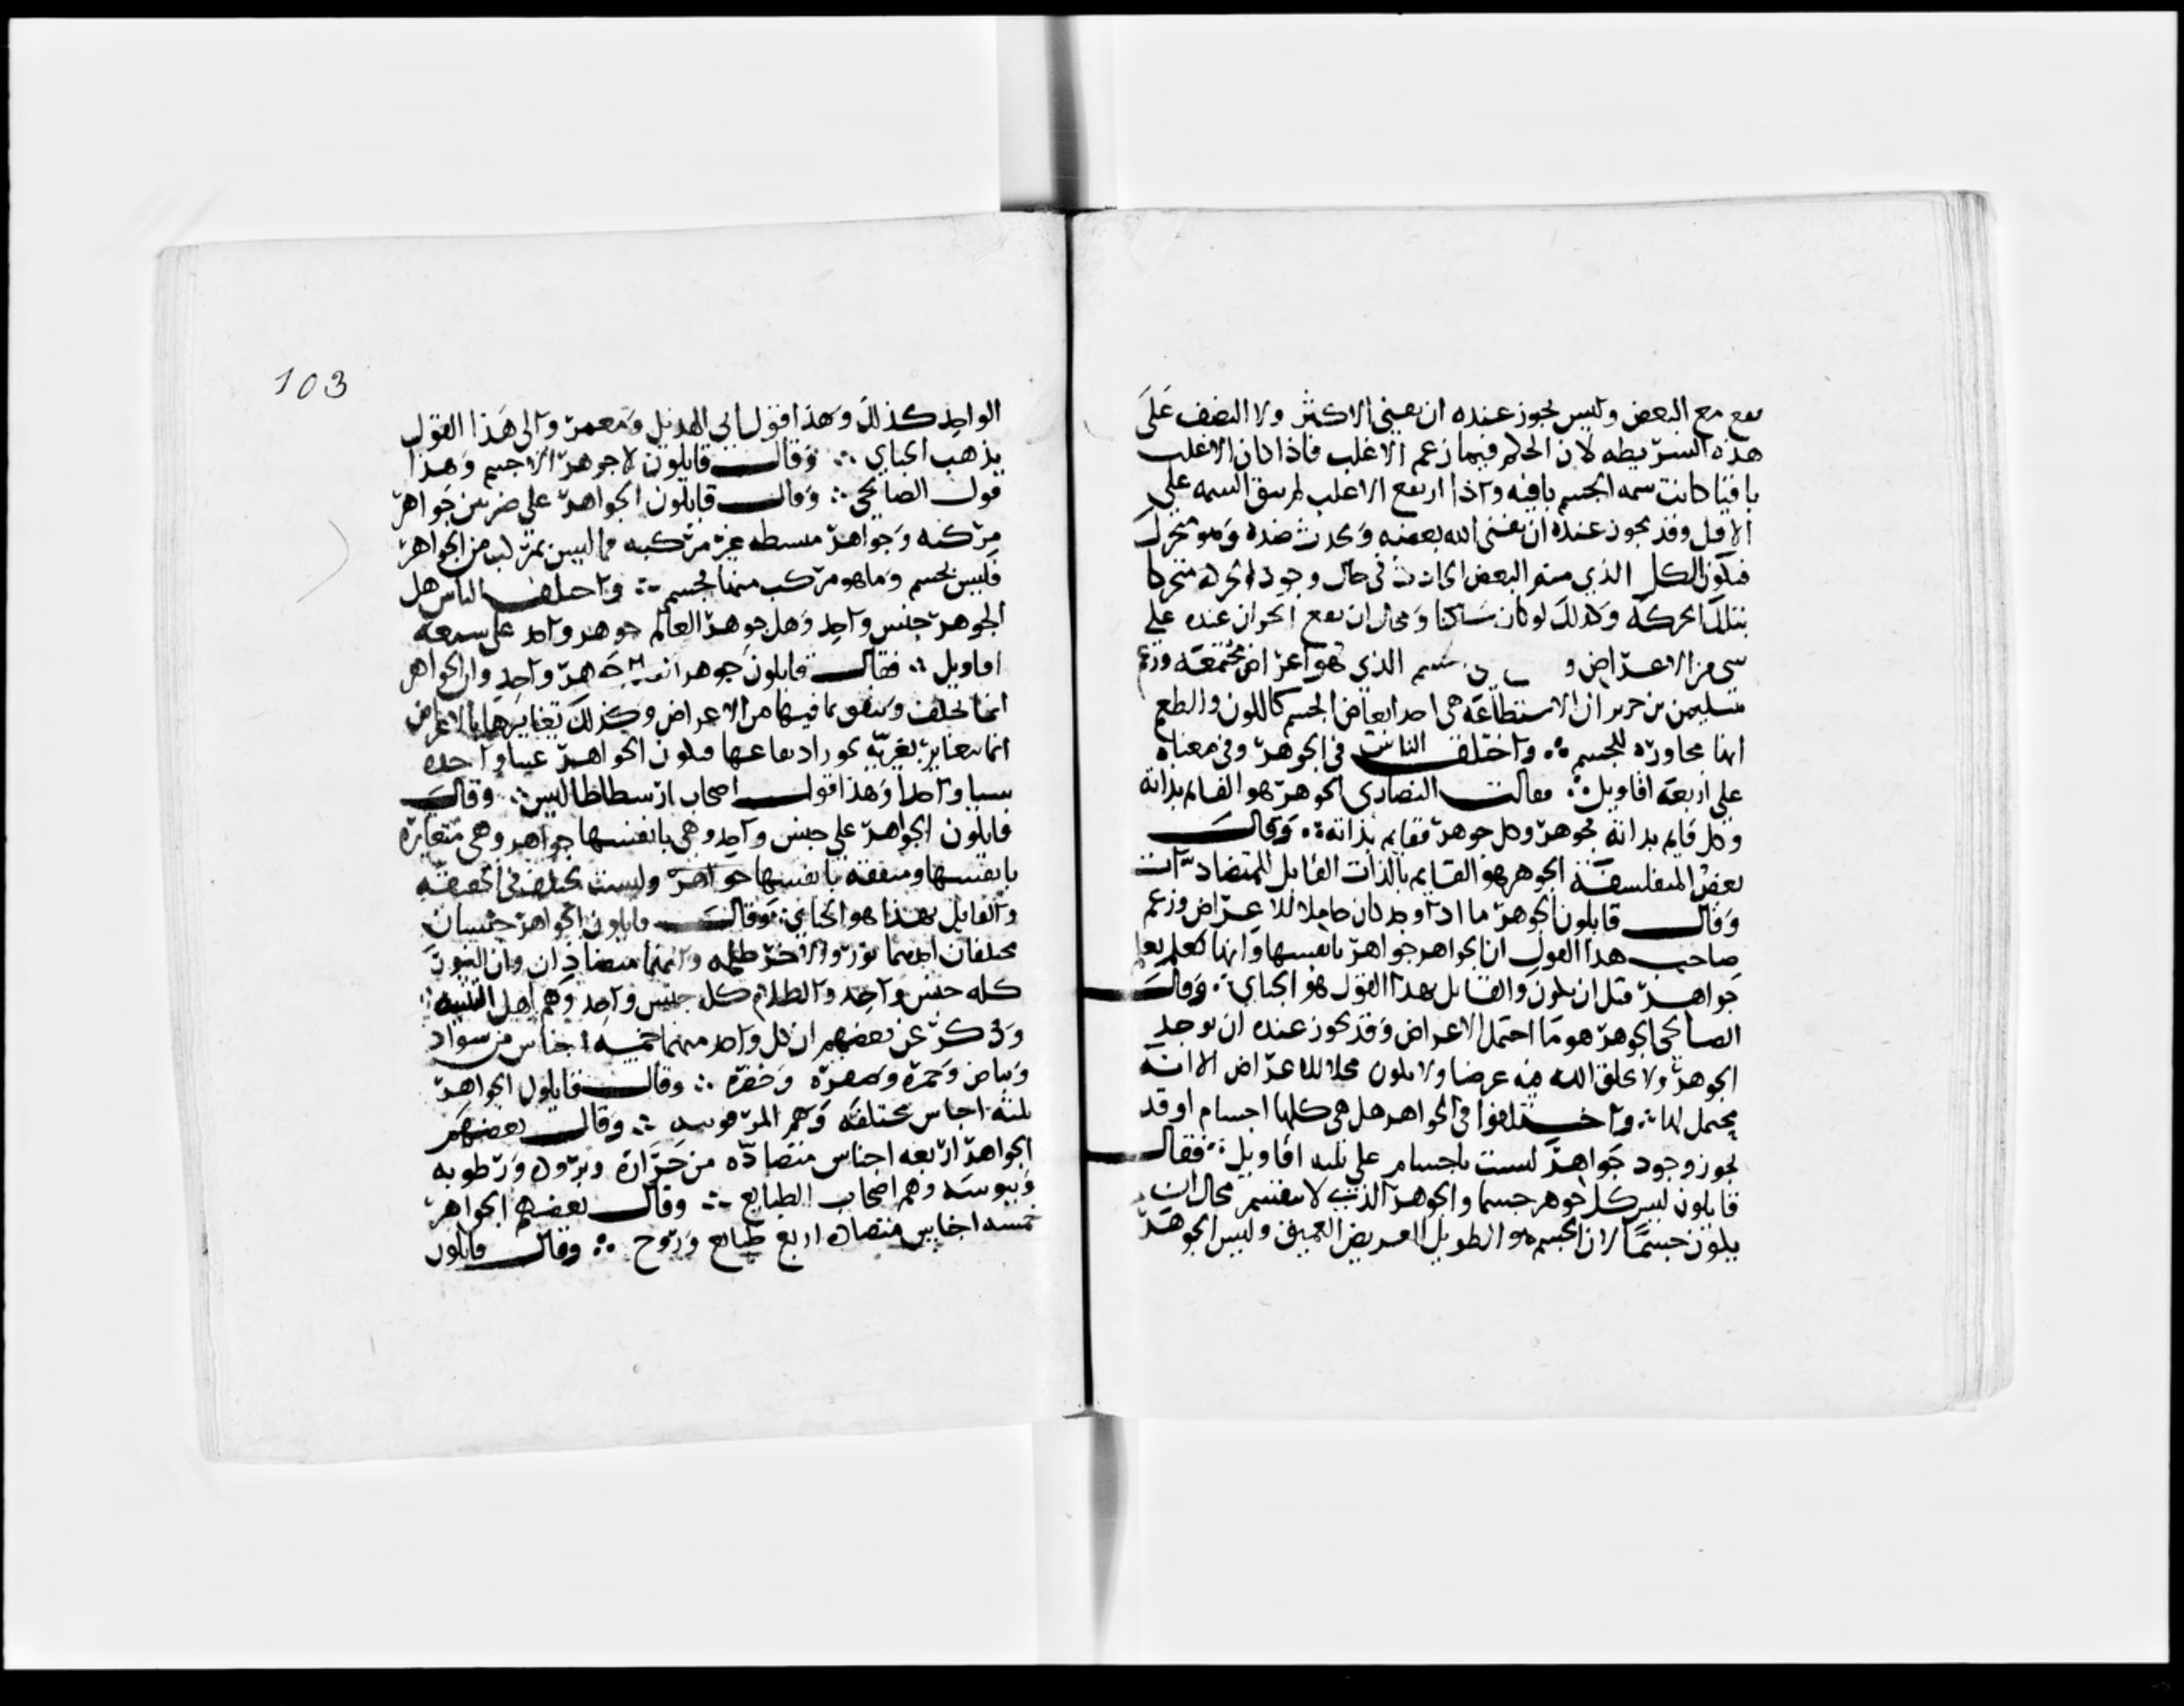 مع البعض وليس يجوز عنده ان يفنى الاكثر ولا النصف على
هذه الشريطه لان الحكم فيما زعم الاغلب فاذا كان الاغلب
باقيا كانت سمه الجسم باقيه واذا ارتفع الاغلب لم يبق السمه على
الاقل وقد يجوز عنده ان يفنى الله بعضه ويحدث ضده وهو متحرك
فيكون الكل الذي منه البعض الحادث في حال وجود الحركة متحركا
بتلك الحركة وكذلك لو كان ساكنا ومحال ان يقع الحركة عنده على
شي من الاعراض و الذي هو اعراض مجتمعة وزعم
سليمن بن جرير ان الاستطاعة هي احد ابعاض الجسم كاللون والطعم
انها مجاورة للجسم ؞ واختلف الناس في الجوهر وفي معناه
على اربعة اقاويل ؞ فقالت النصارى الجوهر هو القايم بذاته
وكل قايم بذاته فجوهر وكل جوهر فقايم بذاته ؞ وقال
بعض المتفلسفة الجوهر هو القايم بالذات القابل للمتضادات
وقال قايلون الجوهر ما اذا وجد كان حاملا للاعراض وزعم
صاحب هذا القول ان الجواهر جواهر بانفسها وانها تعلم
جواهر قبل ان تكون والقايل بهذا القول هو الجباي ؞ وقال
الصالحي الجوهر هو ما احتمل الاعراض وقد يجوز عنده ان يوجد
الجوهر ولا يخلق الله فيه عرضا ولا يكون محلا للاعراض الا انه
محتمل لها ؞ واختلفوا في الجواهر هل هي كلها اجسام او قد
يجوز وجود جواهر ليست باجسام على ثلثه اقاويل ؞ فقال
قايلون ليس كل جوهر جسما والجوهر الذي لا ينقسم محال ان
يكون جسما لان الجسم هو الطويل العريض العميق وليس الجوهر
103
الواحد كذلك وهذا قول ابي الهذيل ومعمر والى هذا القول
يذهب الجباي ؞ وقال قايلون لا جوهر الا جسم وهذا
قول الصالحي ؞ وقال قايلون الجواهر على ضربين جواهر
مركبه وجواهر بسيطه غير مركبه فما ليس بمركب من الجواهر
فليس بجسم وما هو مركب منها فجسم ؞ واختلف الناس هل
الجوهر جنس واحد وهل جوهر العالم جوهر واحد على سبعه
اقاويل ؞ فقال قايلون جوهر العالم جوهر واحد وان الجواهر
انما تختلف وتتفق بما فيها من الاعراض وكذلك تغايرها بالاعراض
انما تتغاير بغيرية يجوز ارتفاعها فتكون الجواهر عينا واحدة
شيا واحدا وهذا قول اصحاب ارسطاطاليس ؞ وقال
قايلون الجواهر على جنس واحد وهي بانفسها جواهر وهي متغايرة
بانفسها ومتفقة بانفسها جواهر وليست تختلف في الحقيقه
والقايل بهذا هو الجباي ؞ وقال قايلون الجواهر جنسان
مختلفان احدهما نور والاخر ظلمه وانهما متضادان وان النور
كله جنس واحد والظلام كله جنس واحد وهم اهل التثنيه ؞
وذكر عن بعضهم ان كل واحد منهما خمسة اجناس من سواد
وبياض وحمرة وصفرة وخضرة ؞ وقال قايلون الجواهر
ثلثة اجناس مختلفة وهم المرقونيه ؞ وقال بعضهم
الجواهر اربعه اجناس متضادة من حرارة وبرودة ورطوبه
ويبوسه وهم اصحاب الطبايع ؞ وقال بعضهم الجواهر
خمسه اجناس متضادة اربع طبايع وروح ؞ وقال قايلون